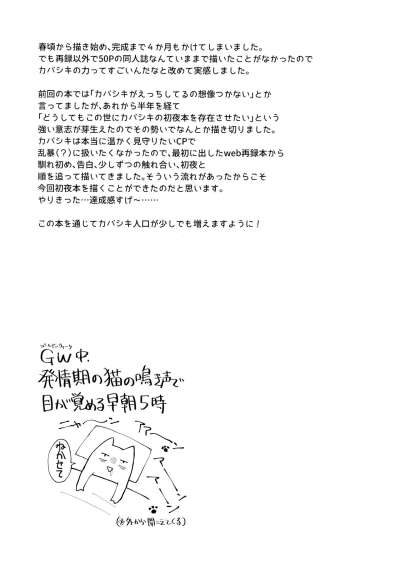 春頃から描き始め、完成まで４か月もかけてしまいました。
でも再録以外で50Pの同人誌なんていままで描いたことがなかったので
カバシキの力ってすごいんだなと改めて実感しました。
前回の本では「カバシキがえっちしてるの想像つかない」とか
言ってましたが、あれから半年を経て
「どうしてもこの世にカバシキの初夜本を存在させたい」という
強い意志が芽生えたのでその勢いでなんとか描き切りました。
カバシキは本当に温かく見守りたいCPで
乱暴（？）に扱いたくなかったので、最初に出したweb再録本から
馴れ初め、告白、少しずつの触れ合い、初夜と
順を追って描いてきました。そういう流れがあったからこそ
今回初夜本を描くことができたのだと思います。
やりきった…達成感すげ〜……
この本を通じてカバシキ人口が少しでも増えますように！
ゴールデンウィーク
GW中、
発情期の猫の鳴き声で
目が覚める早朝５時
ニャ〜ン
アア〜ン
アア〜ン
ねかせて
(※外から聞こえてくる)